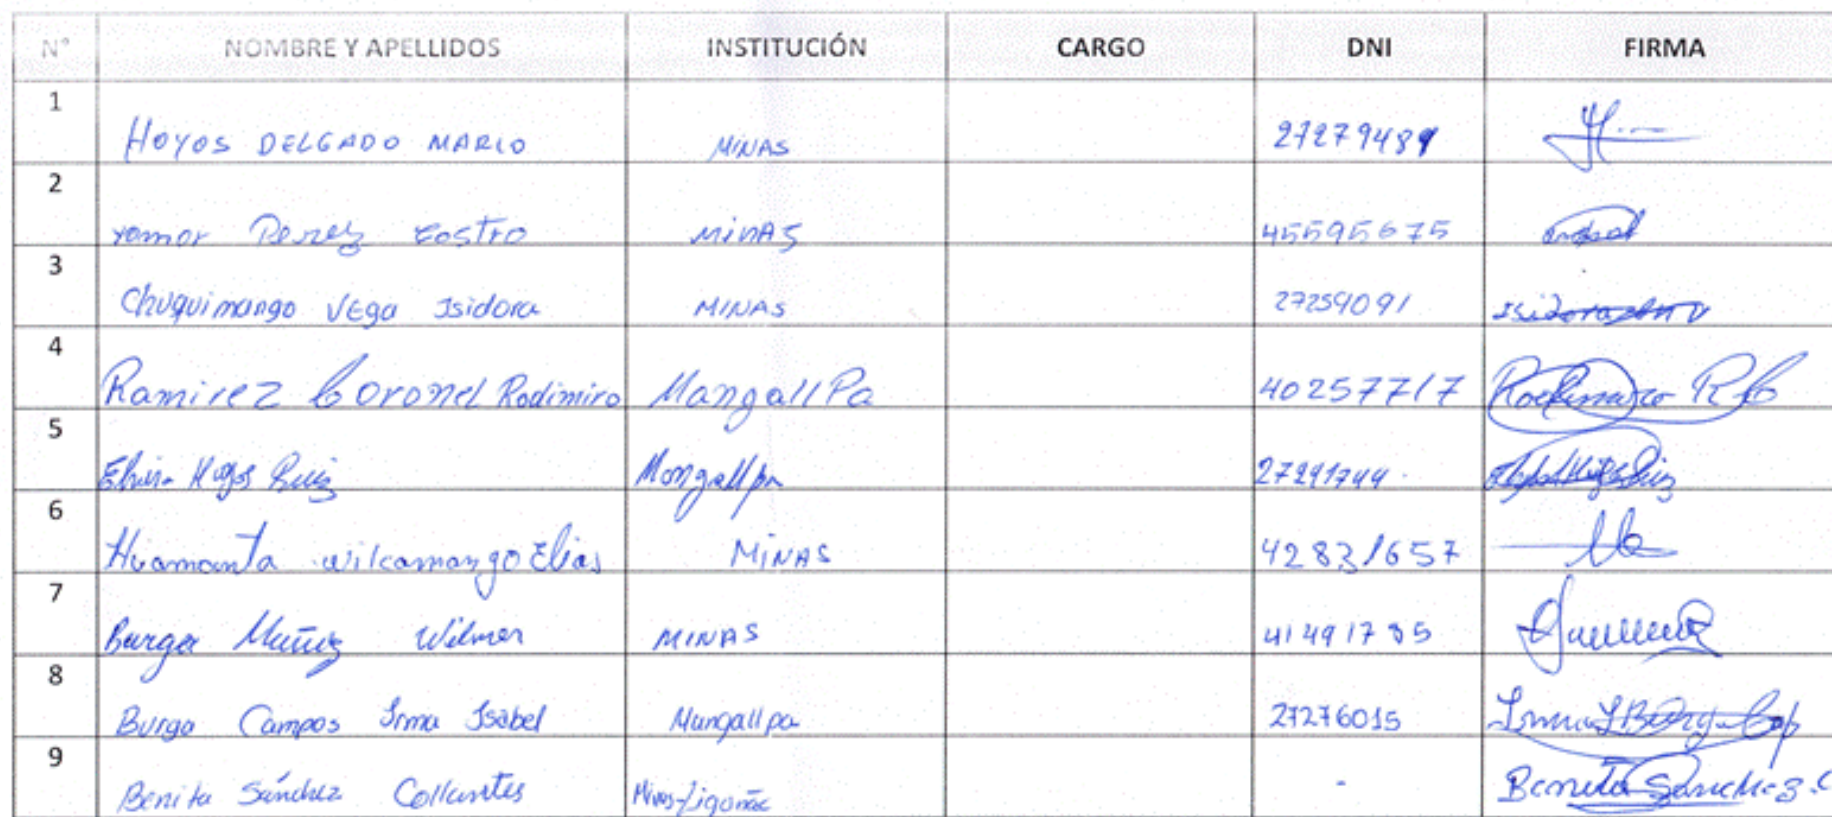 N° NOMBRE Y APELLIDOS INSTITUCIÓN CARGO DNI FIRMA
1 HOYOS DELGADO MARIO MINAS
2 yomor Perez Costro MINAS 45595675
3 Chuquimango VEga Isidora MINAS 27259091
4 Ramirez Coronel Rodimiro MangallPa 40257717
5 Hoyos Ruiz Mongallpa
6 Huamanta wilcamango Elias MINAS 42831657
7 Burga Muñiz Wilmer MINAS
8 Burga Campos Irma Isabel Mungallpa 27276015
9 Benita Sánchez Collantes - Benita Sanchez.C